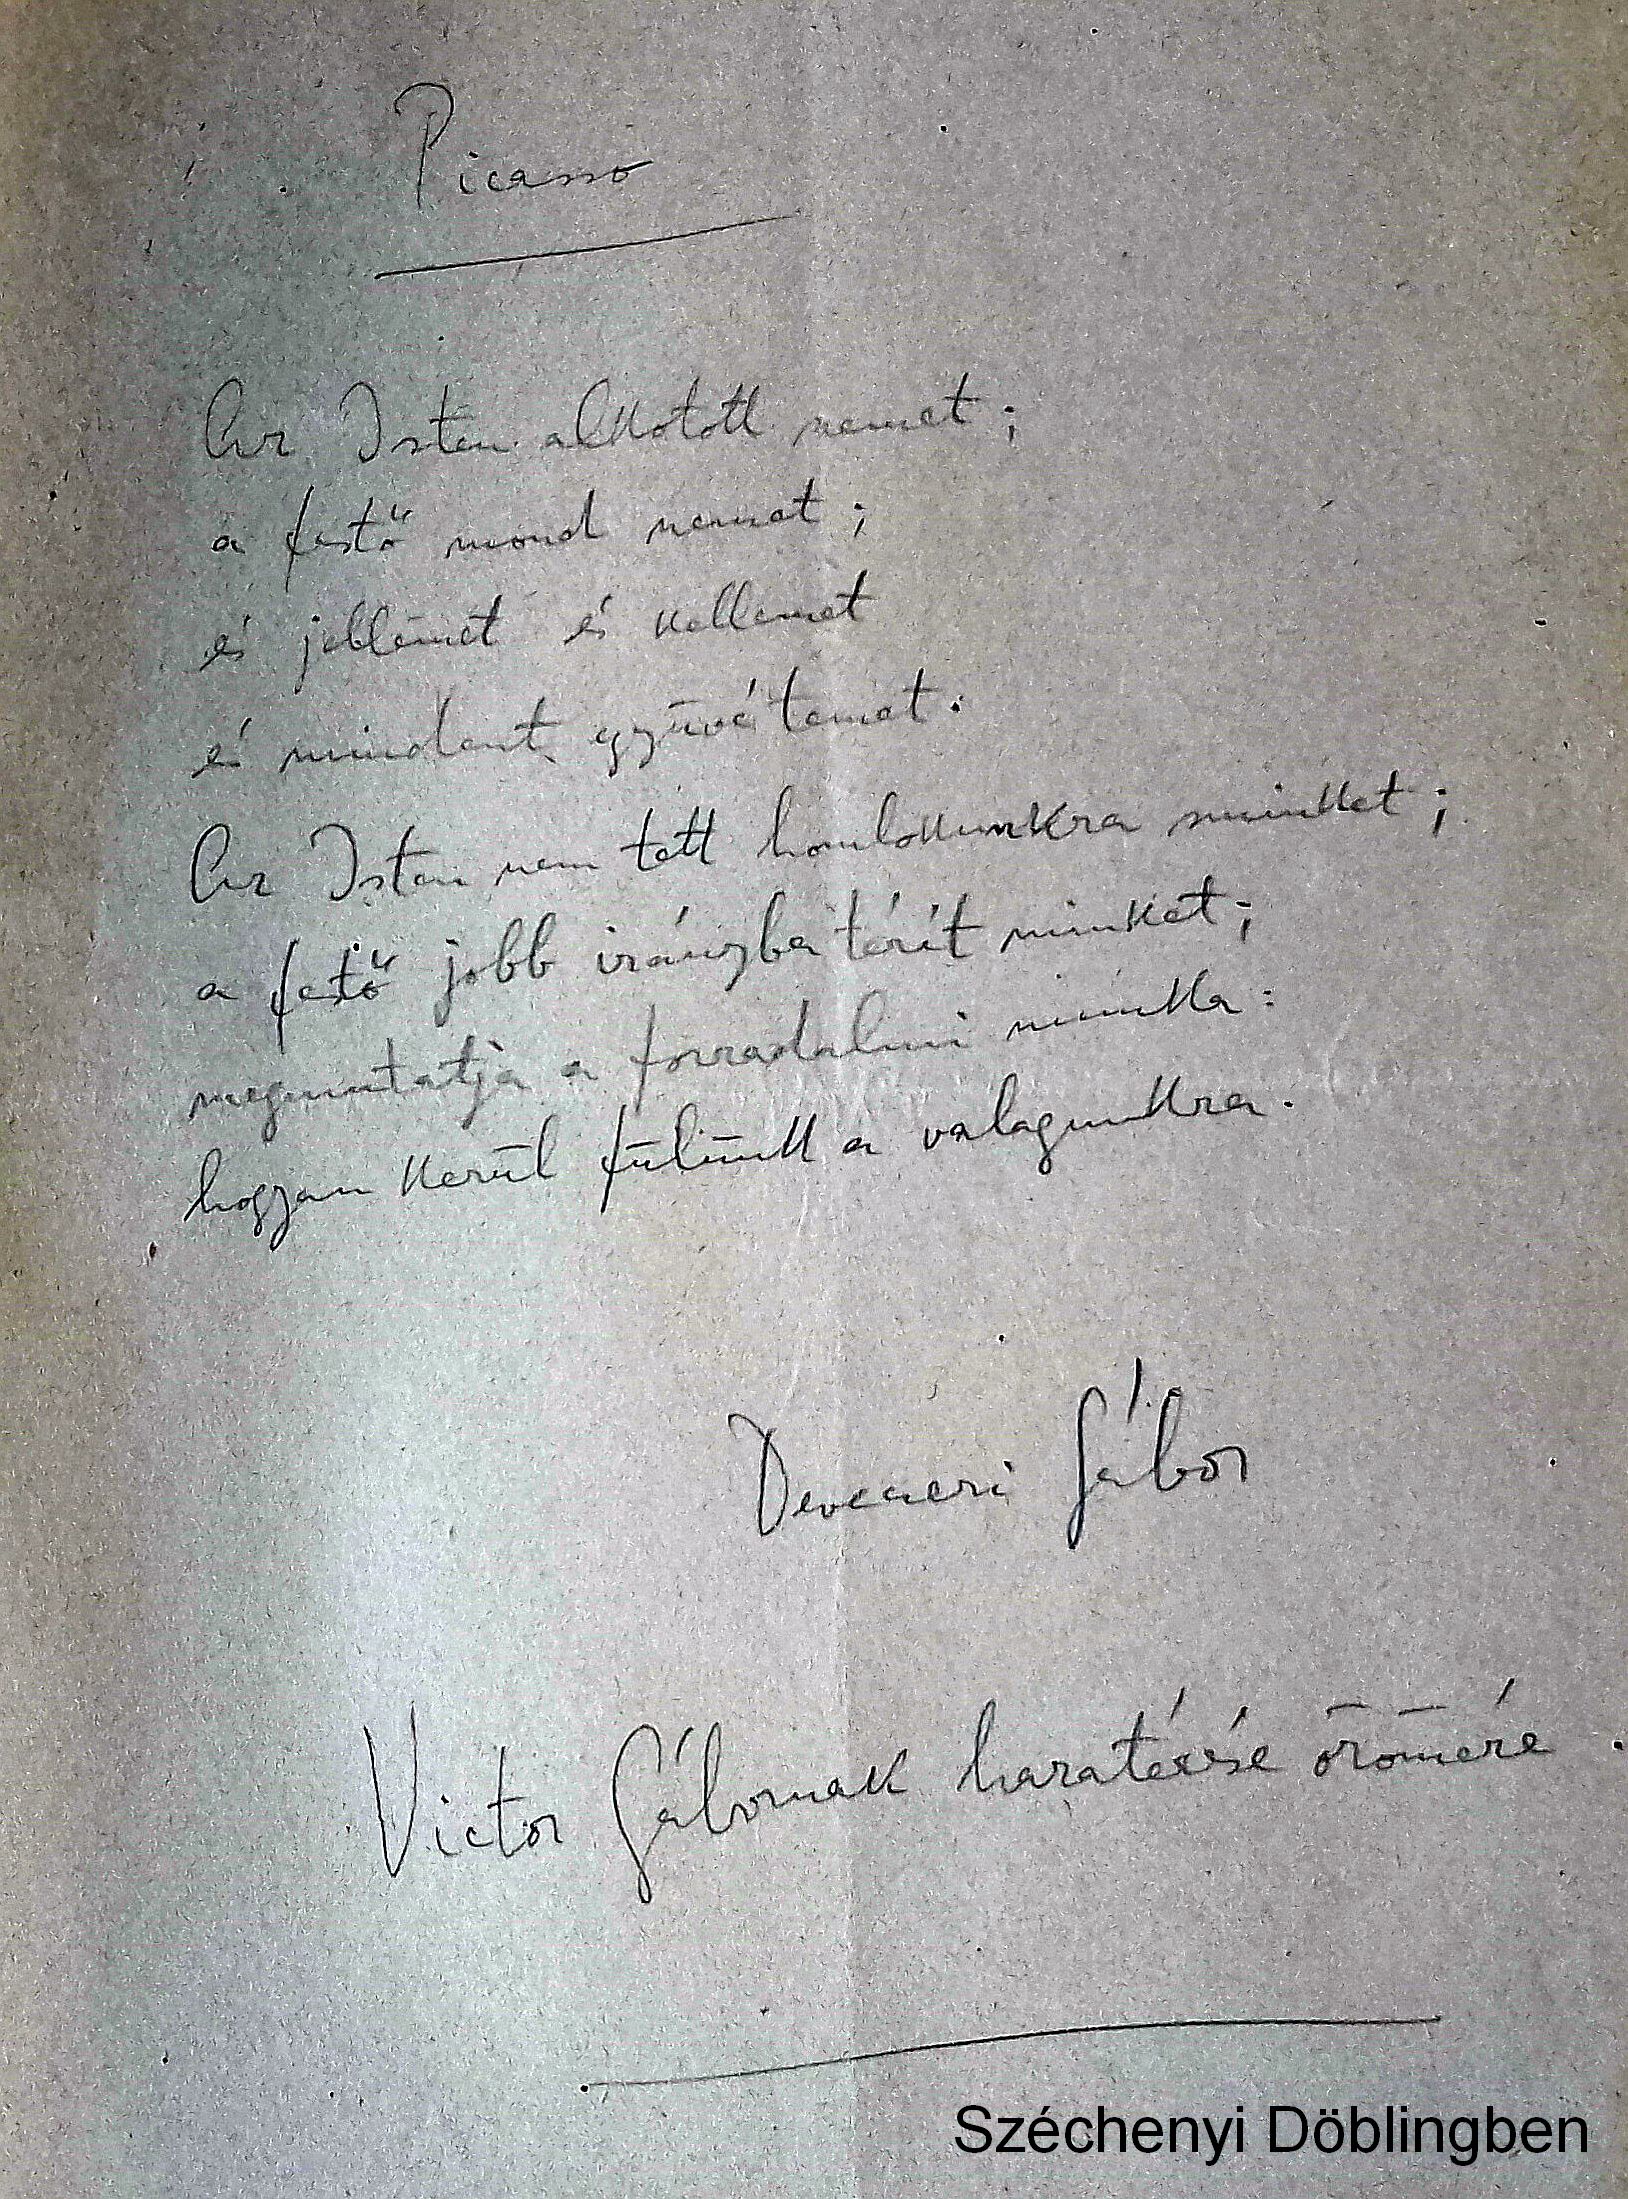 Picasso
Az Isten alkotott nemet;
a festő mond nemet;
és jellemet és kellemet
és mindent együvé temet.
Az Isten nem tett homlokunkra sminket;
a festő jobb irányba térít minket;
megmutatja a forradalmi munka:
hogyan kerül fülünk a valagunkra.
Devecseri Gábor
Victor Gábornak hazatérése örömére
Széchenyi Döblingben